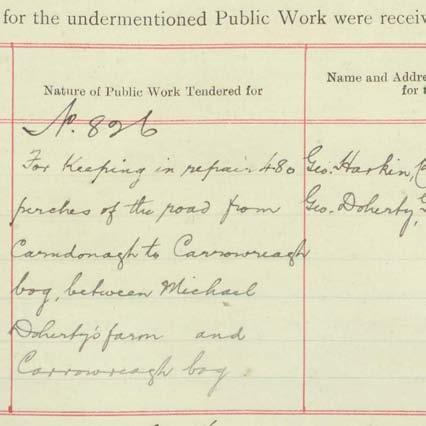 for the undermentioned Public Work were receiv
Nature of Public Work Tendered for
Name and Addre
for t
No. 826
For Keeping in repair 480
perches of the road from
Carndonagh to Carrowreagh
bog, between Michael
Doherty's farm and
Carrowreagh bog.
Geo. Harkin,
Geo. Doherty,